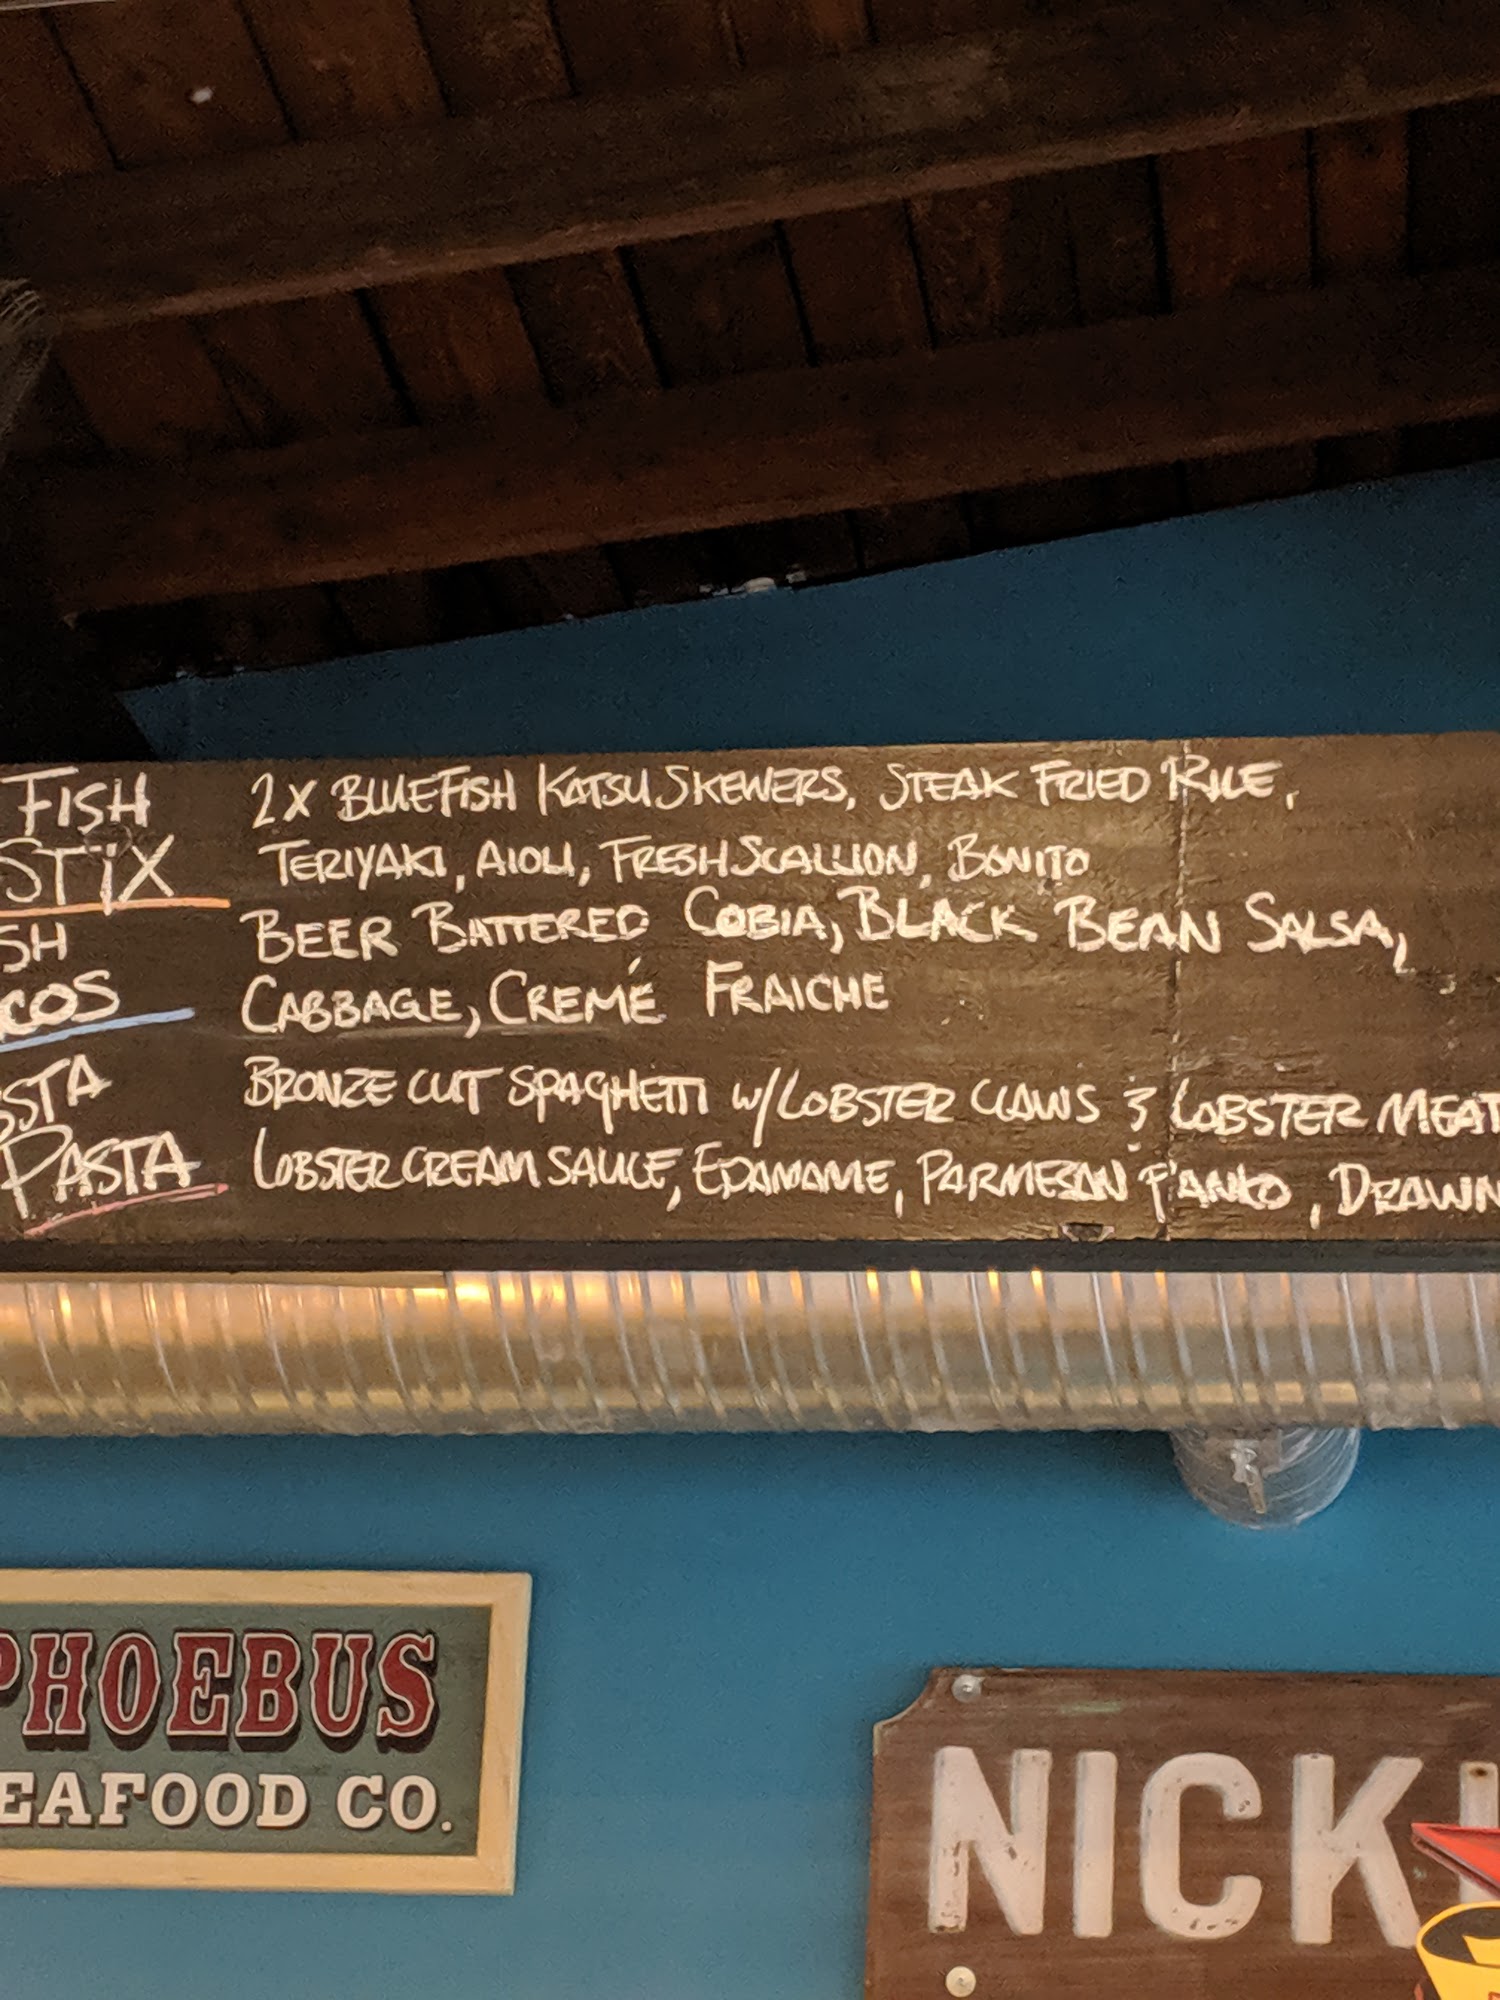 FISH 2X BLUEFISH KATSU SKEWERS, STEAK FRIED RICE,
STIX TERIYAKI, AIOLI, FRESH SCALLION, BONITO
SH BEER BATTERED COBIA, BLACK BEAN SALSA,
COS CABBAGE, CREMÉ FRAICHE
STA BRONZE CUT SPAGHETTI W/LOBSTER CLAWS & LOBSTER MEAT
PASTA LOBSTER CREAM SAUCE, EDAMAME, PARMESAN PANKO, DRAWN
PHOEBUS
EAFOOD CO.
NICK